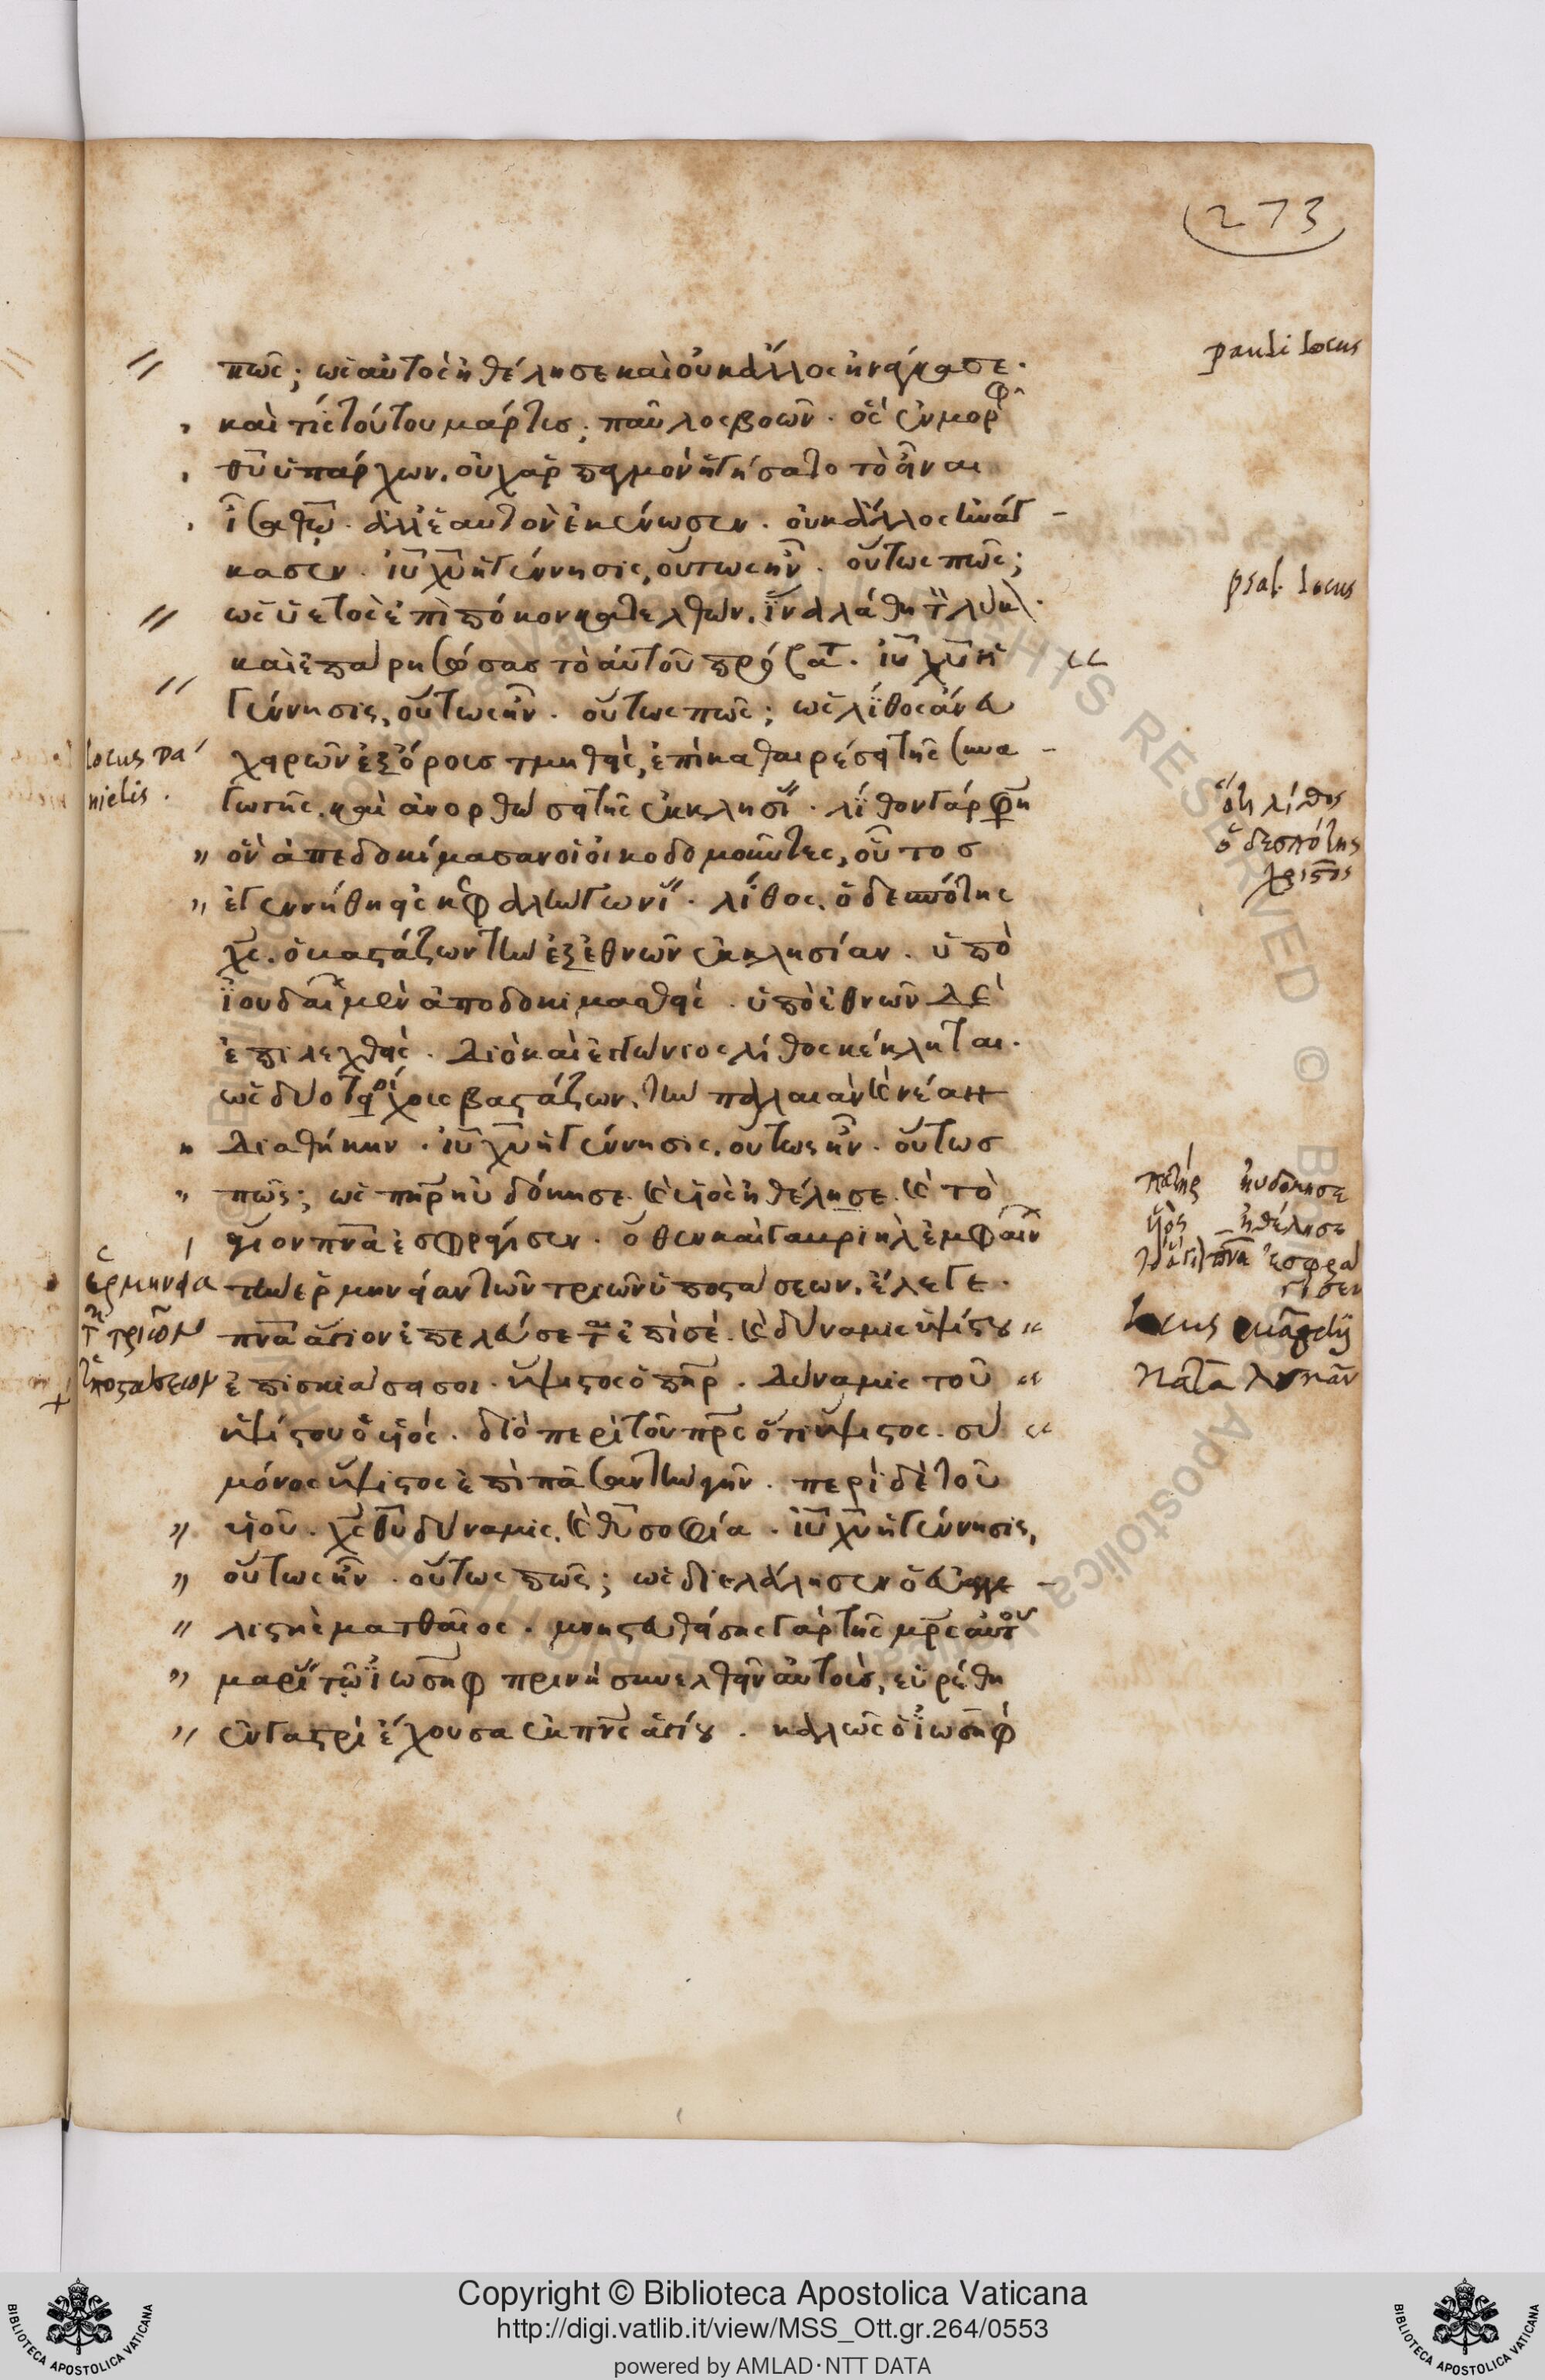 273
πῶς; ὡς αὐτὸς ἠθέλησε καὶ οὐκ ἄλλος ἠνάγκασε.
καὶ τίς τούτου μάρτυς; παῦλος βοῶν. ὃς ἐν μορφῆ
θῦ ὑπάρχων. οὐχ ἁρπαγμὸν ἡγήσατο τὸ εἶναι
ἶσα θῶ. ἀλλ' ἑαυτὸν ἐκένωσεν. οὐκ ἄλλος ἠνάγ-
κασεν. ἰῦ χῦ ἡ γέννησις, οὕτως ἦν. οὕτως πῶς;
ὡς ὑετὸς ἐπὶ πόκον κατελθών. ἵνα λάθη
καὶ ἐπα τὸ αὐτοῦ. ἰῦ χῦ ἡ
γέννησις, οὕτως ἦν. οὕτως πῶς; ὡς λίθος ἄνευ
χειρῶν ἐξ ὄρους τμηθεὶς, ἐπὶ καθαιρέσει τῆς συνα-
γωγῆς. καὶ ἀνορθώσει τῆς ἐκκλησί. λίθον γάρ φη
ὃν ἀπεδοκίμασαν οἱ οἰκοδομοῦντες, οὗτος
ἐγεννήθη εἰς κεφαλὴν γωνί. λίθος. ὁ δεσπότης
χς. ὁ βαστάζων τὴν ἐξ ἐθνῶν ἐκκλησίαν. ὑπὸ
ἰουδαί μὲν ἀποδοκιμασθεὶς. ὑπὸ ἐθνῶν δὲ
ἐπιλεχθεὶς. διὸ καὶ ἐγγώνιος λίθος κέκληται.
ὡς δύο τοίχους βαστάζων. τὴν παλαιὰν καὶ νέαν
διαθήκην. ἰῦ χῦ ἡ γέννησις. οὕτως ἦν. οὕτως
πῶς; ὡς πὴρ ηὐδόκησε. καὶ υἱὸς ἠθέλησε. καὶ τὸ
ἅγιον πνα ἐσφράγισεν. ὅθεν καὶ γαβριὴλ ἐμφαίν
τὴν ἑρμηνείαν τῶν τριῶν ὑποστάσεων. ἔλεγε.
πνα ἅγιον ἐπελεύσεται ἐπὶ σέ. καὶ δύναμις ὑψίστου
ἐπισκιάσει σοι. ὕψιστος ὁ πὴρ. δύναμις τοῦ
ὑψίστου ὁ υἱός. διὸ περὶ τοῦ πρς ὅτι ὕψιστος. σὺ
μόνος ὕψιστος ἐπὶ πᾶσαν τὴν γῆν. περὶ δὲ τοῦ
υἱοῦ. χς θῦ δύναμις. καὶ θῦ σοφία. ἰῦ χῦ ἡ γέννησις,
οὕτως ἦν. οὕτως πῶς; ὡς διελάλησεν ὁ εὐαγγε-
λιστὴς ματθαῖος. μνηστευθείσης γὰρ τῆς μρς αὐτοῦ
μαρί τῶ ἰωσηφ πρινὴ συνελθεῖν αὐτοὺς, εὑρέθη
ἐν γαστρὶ ἔχουσα ἐκ πνς ἁγίου. καλῶς ὁ ἰωσὴφ
pauli locus
psal. locus
locus da
nielis.
ὅτι λίθος
ὁ δεσπότης
χριστὸς
πατήρ ηυδόκησε
υἱὸς ἠθέλησε
τὸ ἅγι πνα ἐσφρα
γισεν
locus euāgelij
ἑρμηνεία
τῶν τριῶν
ὑποστάσεων
Copyright © Biblioteca Apostolica Vaticana
http://digi.vatlib.it/view/MSS_Ott.gr.264/0553
powered by AMLAD·NTT DATA
BIBLIOTECA APOSTOLICA VATICANA
BIBLIOTECA APOSTOLICA VATICANA